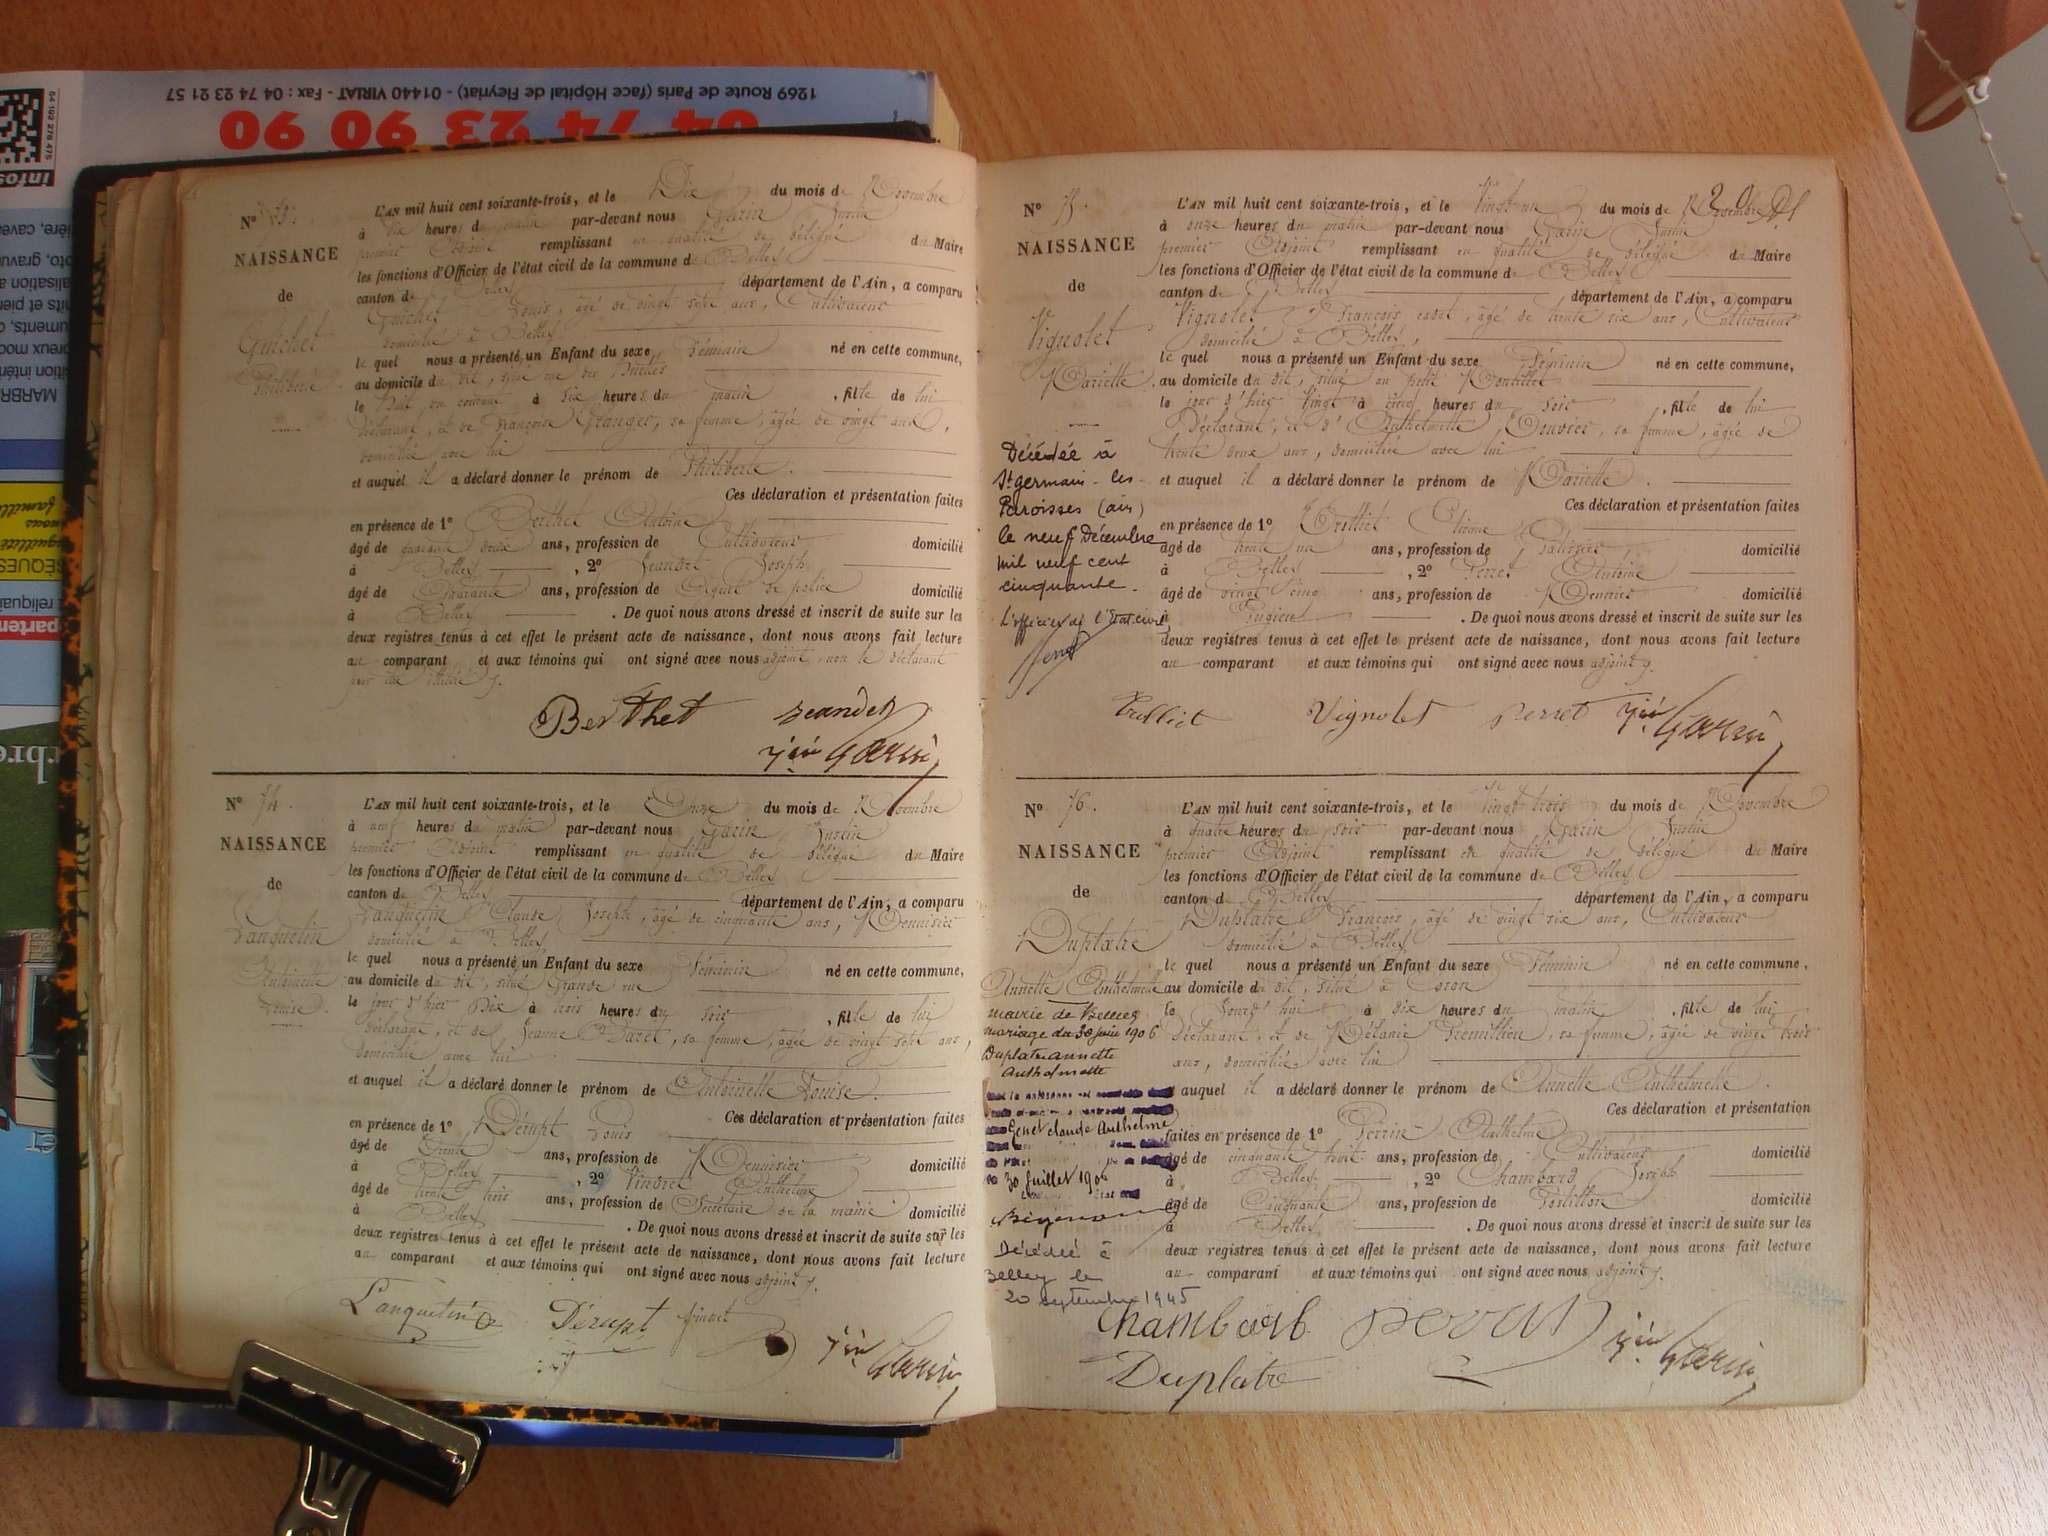 1269 Route de Paris (face Hôpital de Fleyriat) - 01440 VIRIAT - Fax : 04 74 23 21 57
04 74 23 90 90
N° 73.
NAISSANCE
de
Guichet
Philiberte
L'AN mil huit cent soixante-trois, et le Dix du mois de Novembre
à dix heures du matin par-devant nous Garin Justin
premier Adjoint remplissant en qualité de délégué du Maire
les fonctions d'Officier de l'état civil de la commune de Belley
canton de Belley département de l'Ain, a comparu
Guichet Louis, âgé de vingt sept ans, Cultivateur
domicilié à Belley
le quel nous a présenté un Enfant du sexe Féminin né en cette commune,
au domicile du dit, situé rue des
le huit du courant à six heures du matin, fille de lui
déclarant, et de Françoise Granger, sa femme, âgée de vingt ans,
domiciliée avec lui
et auquel il a déclaré donner le prénom de Philiberte.
Ces déclaration et présentation faites
en présence de 1° Berthet Antoine
âgé de deux ans, profession de Cultivateur domicilié
à Belley, 2° Jeandet Joseph
âgé de Quarante ans, profession de Agent de police domicilié
à Belley. De quoi nous avons dressé et inscrit de suite sur les
deux registres tenus à cet effet le présent acte de naissance, dont nous avons fait lecture
au comparant et aux témoins qui ont signé avec nous adjoint, non le déclarant
pour être illitéré
Berthet Jeandet
Garin
N° 74.
NAISSANCE
de
Lanquetin
Antoinette
Louise.
L'AN mil huit cent soixante-trois, et le Onze du mois de Novembre
à neuf heures du matin par-devant nous Garin Justin
premier Adjoint remplissant en qualité de délégué du Maire
les fonctions d'Officier de l'état civil de la commune de Belley
canton de Belley département de l'Ain, a comparu
Lanquetin Claude Joseph, âgé de cinquante ans, Menuisier
domicilié à Belley
le quel nous a présenté un Enfant du sexe Féminin né en cette commune,
au domicile du dit, situé Grande rue
le jour d'hier Dix à trois heures du soir, fille de lui
déclarant, et de Jeanne Duret, sa femme, âgée de vingt sept ans,
domiciliée avec lui
et auquel il a déclaré donner le prénom de Antoinette Louise.
Ces déclaration et présentation faites
en présence de 1° Dérupt Louis
âgé de Trente ans, profession de Menuisier domicilié
à Belley, 2° Vindret Anthelme
âgé de trente trois ans, profession de Secrétaire de la mairie domicilié
à Belley. De quoi nous avons dressé et inscrit de suite sur les
deux registres tenus à cet effet le présent acte de naissance, dont nous avons fait lecture
au comparant et aux témoins qui ont signé avec nous adjoint
Lanquetin Dérupt
Garin
N° 75.
NAISSANCE
de
Vignolet
Mariette.
Décédée à
St germain-les-
Paroisses (ain)
le neuf Décembre
mil neuf cent
cinquante.
L'officier de l'Etat civil
L'AN mil huit cent soixante-trois, et le Vingt un du mois de Novembre
à onze heures du matin par-devant nous Garin Justin
premier Adjoint remplissant en qualité de délégué du Maire
les fonctions d'Officier de l'état civil de la commune de Belley
canton de Belley département de l'Ain, a comparu
Vignolet François, cadet, âgé de trente six ans, Cultivateur
domicilié à Belley,
le quel nous a présenté un Enfant du sexe Féminin né en cette commune,
au domicile du dit, situé au petit
le jour d'hier Vingt à cinq heures du soir, fille de lui
Déclarant, et d'Anthelmette Bouvier, sa femme, âgée de
trente deux ans, domiciliée avec lui
et auquel il a déclaré donner le prénom de Mariette.
Ces déclaration et présentation faites
en présence de 1° Trolliet
âgé de trente un ans, profession de Patissier domicilié
à Belley, 2° Perret Antoine
âgé de vingt cinq ans, profession de Meunier domicilié
à Pugieu. De quoi nous avons dressé et inscrit de suite sur les
deux registres tenus à cet effet le présent acte de naissance, dont nous avons fait lecture
au comparant et aux témoins qui ont signé avec nous adjoint
Trolliet Vignolet Perret Garin
N° 76.
NAISSANCE
de
Duplatre
Annette Anthelmette
mairie de Belley
mariage du 30 juin 1906
Duplatre annette
Anthelmette
Genet claude Anthelme
30 Juillet 1906
Décédée à
Belley le
20 septembre 1945
L'AN mil huit cent soixante-trois, et le vingt-trois du mois de Novembre
à quatre heures du soir par-devant nous Garin Justin
premier Adjoint remplissant en qualité de délégué du Maire
les fonctions d'Officier de l'état civil de la commune de Belley
canton de Belley département de l'Ain, a comparu
Duplatre François, âgé de vingt six ans, Cultivateur
domicilié à Belley
le quel nous a présenté un Enfant du sexe Féminin né en cette commune,
au domicile du dit, situé à Coron
le Jourd'hui à dix heures du matin, fille de lui
déclarant, et de Mélanie sa femme, âgée de vingt trois
ans, domiciliée avec lui
auquel il a déclaré donner le prénom de Annette Anthelmette.
Ces déclaration et présentation
faites en présence de 1° Perrin Anthelme
âgé de cinquante huit ans, profession de Cultivateur domicilié
à Belley, 2° Chambard Joseph
âgé de Cinquante ans, profession de Postillon domicilié
à Belley. De quoi nous avons dressé et inscrit de suite sur les
deux registres tenus à cet effet le présent acte de naissance, dont nous avons fait lecture
au comparant et aux témoins qui ont signé avec nous adjoint
Chambard Garin
Duplatre